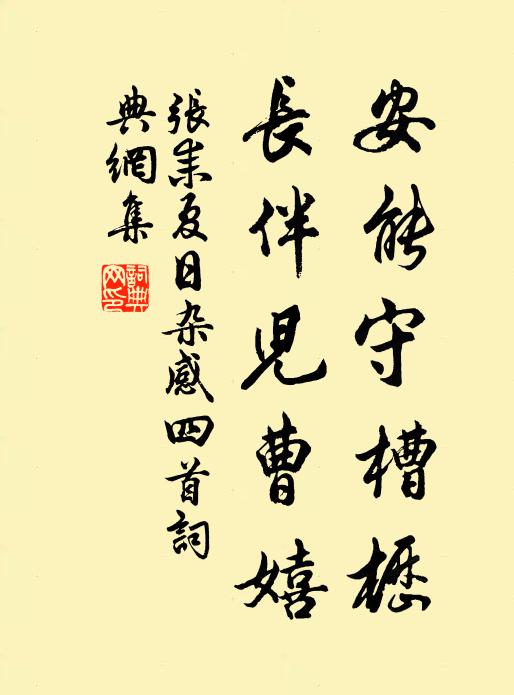 安能守槽櫪
長伴児曹嬉
張耒夏日杂感四首詞
典網集
詞典网印